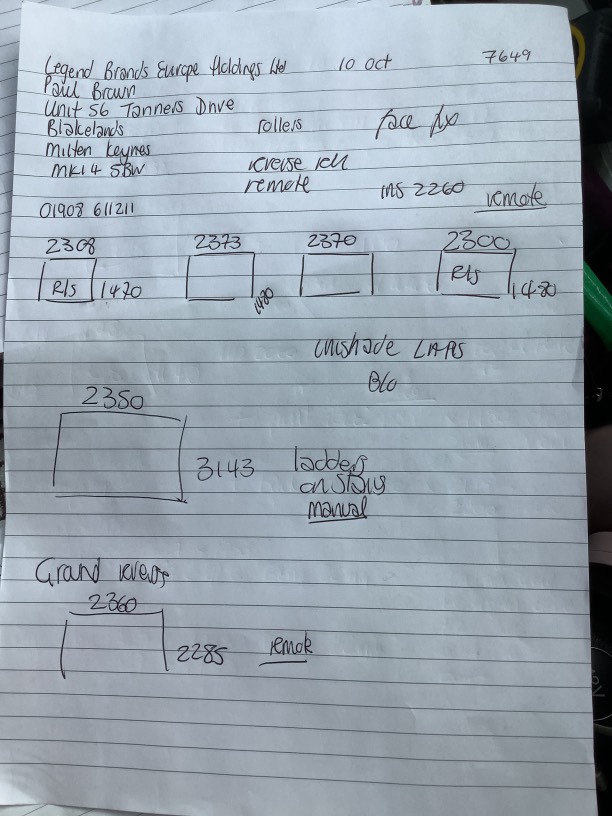 Legend Brands Europe Holdings Ltd 10 Oct 7649
Paul Brown
Unit 56 Tanners Drive
Blakelands rollers face fix
Milton Keynes reverse roll
MK14 5BW remote INS 2260 remote
01908 611211
2308 2373 2370 2300
R/s 1470 1480 R/s 1480
Unishade
B/O
2350
3143 ladders
on stairs
manual
Grand
2360
2285 remote